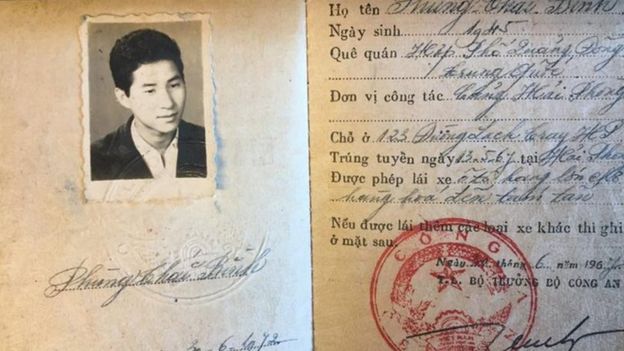 Phùng Chấn Bình
Họ tên Phùng
Ngày sinh 1945
Quê quán Hợp Phố Quảng Đông
Trung Quốc
Đơn vị công tác Cảng Hải Phòng
Chỗ ở 123 Đường Lạch Tray HP
Trúng tuyển ngày 13.5.67 tại Hải Phòng
Được phép lái xe ô tô hàng lớn
hàng hoá đến tám tấn
Nếu được lái thêm các loại xe khác thì ghi
ở mặt sau.
CÔNG AN
Ngày tháng 6 năm 1967
T.L. BỘ TRƯỞNG BỘ CÔNG AN
VIỆT NAM